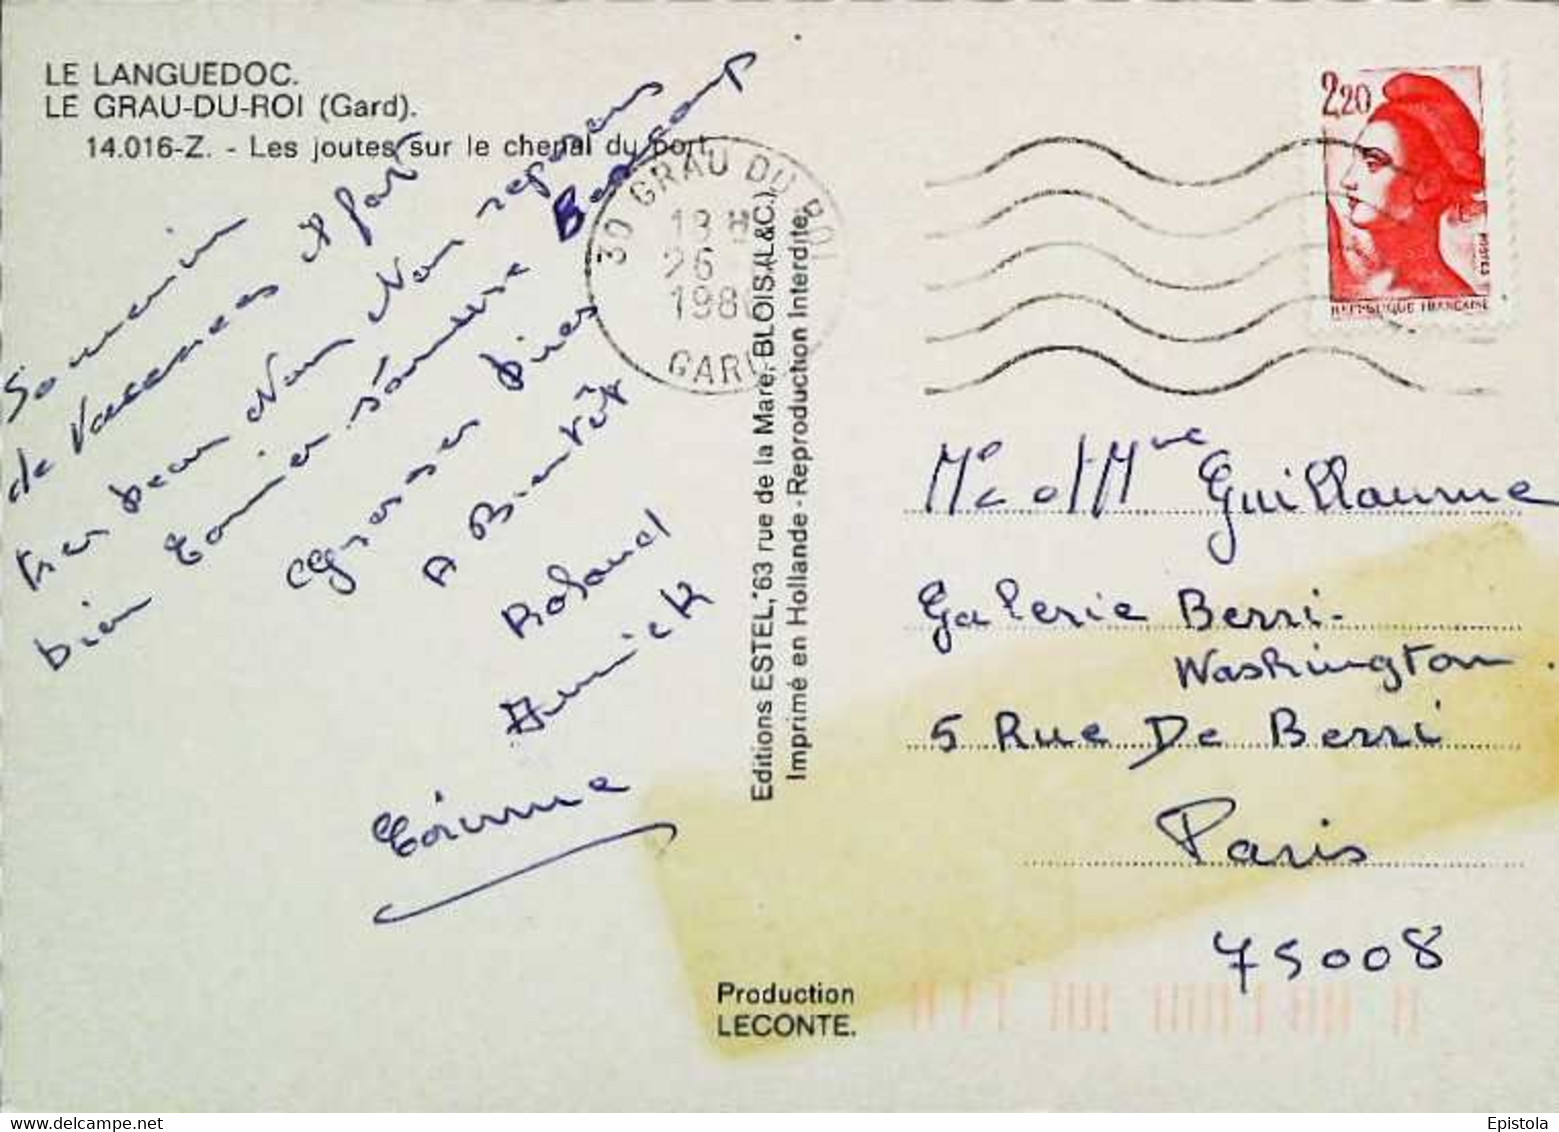 LE LANGUEDOC.
LE GRAU-DU-ROI (Gard).
14.016-Z. - Les joutes sur le chenal du port.
Souvenir
de Vacances il fait
tres beau Nous Nous reposons
bien Corinne s'amuse Beaucoup
Grosses bises
A Bientôt
Roland
Annick
Corinne
Editions ESTEL, 63 rue de la Mare, BLOIS (L&C.)
Imprimé en Hollande - Reproduction Interdite.
Production
LECONTE.
30 GRAU DU ROI
26
198
GARD
2,20
POSTES
REPUBLIQUE FRANÇAISE
Mr et Mme Guillaume
Galerie Berri-
Washington.
5 Rue De Berri
Paris
75008
delcampe.net
Epistola